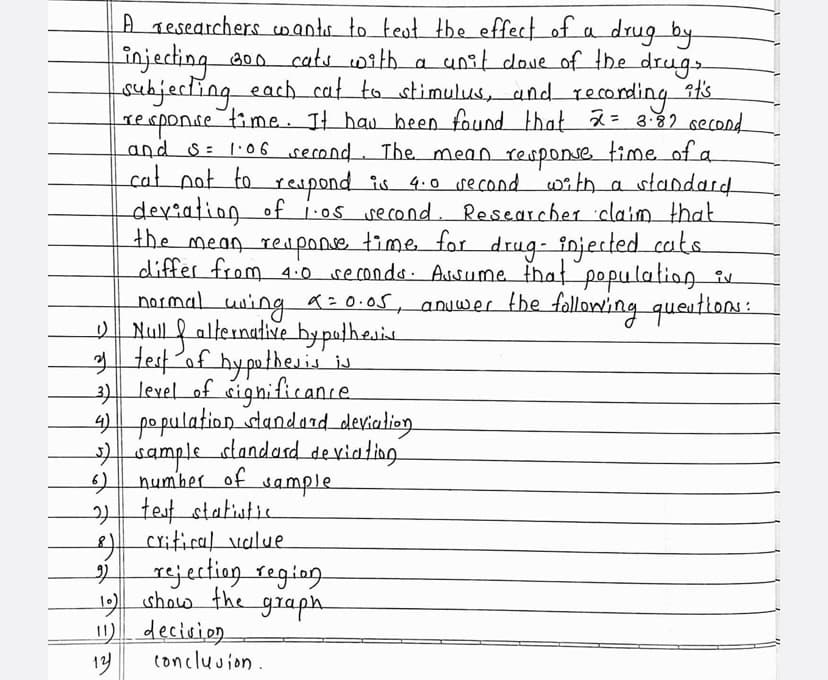 A researchers wants to test the effect of a drug by
injecting 300 cats with a unit dose of the drug,
subjecting each cat to stimulus, and recording it's
response time. It has been found that x̄ = 3.89 second
and s = 1.06 second. The mean response time of a
cat not to respond is 4.0 second with a standard
deviation of 1.05 second. Researcher claim that
the mean response time for drug-injected cats
differ from 4.0 seconds. Assume that population is
normal using α = 0.05, answer the following questions:
1) Null & alternative hypothesis
2) test of hypothesis is
3) level of significance
4) population standard deviation
5) sample standard deviation
6) number of sample
7) test statistic
8) critical value
9) rejection region
10) show the graph
11) decision
12) conclusion.